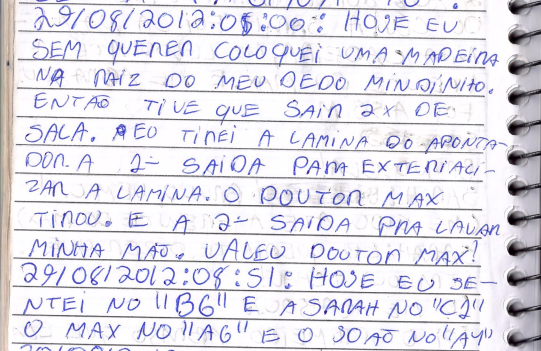 29/08/2012:05:00: HOJE EU
SEM QUERER COLOQUEI UMA MADEIRA
NA RAIZ DO MEU DEDO MINDINHO.
ENTÃO TIVE QUE SAIR 2X DE
SALA. EU TIREI A LAMINA DO APONTA-
DOR. A 2ª SAIDA PARA EXTERIALI-
ZAR A LAMINA. O DOUTOR MAX
TIROU. E A 2ª SAIDA PRA LAVAR
MINHA MÃO. VALEU DOUTOR MAX!
29/08/2012:08:51: HOJE EU SE-
NTEI NO "B6" E A SARAH NO "C2"
O MAX NO "A6" E O JOAÕ NO "A4"